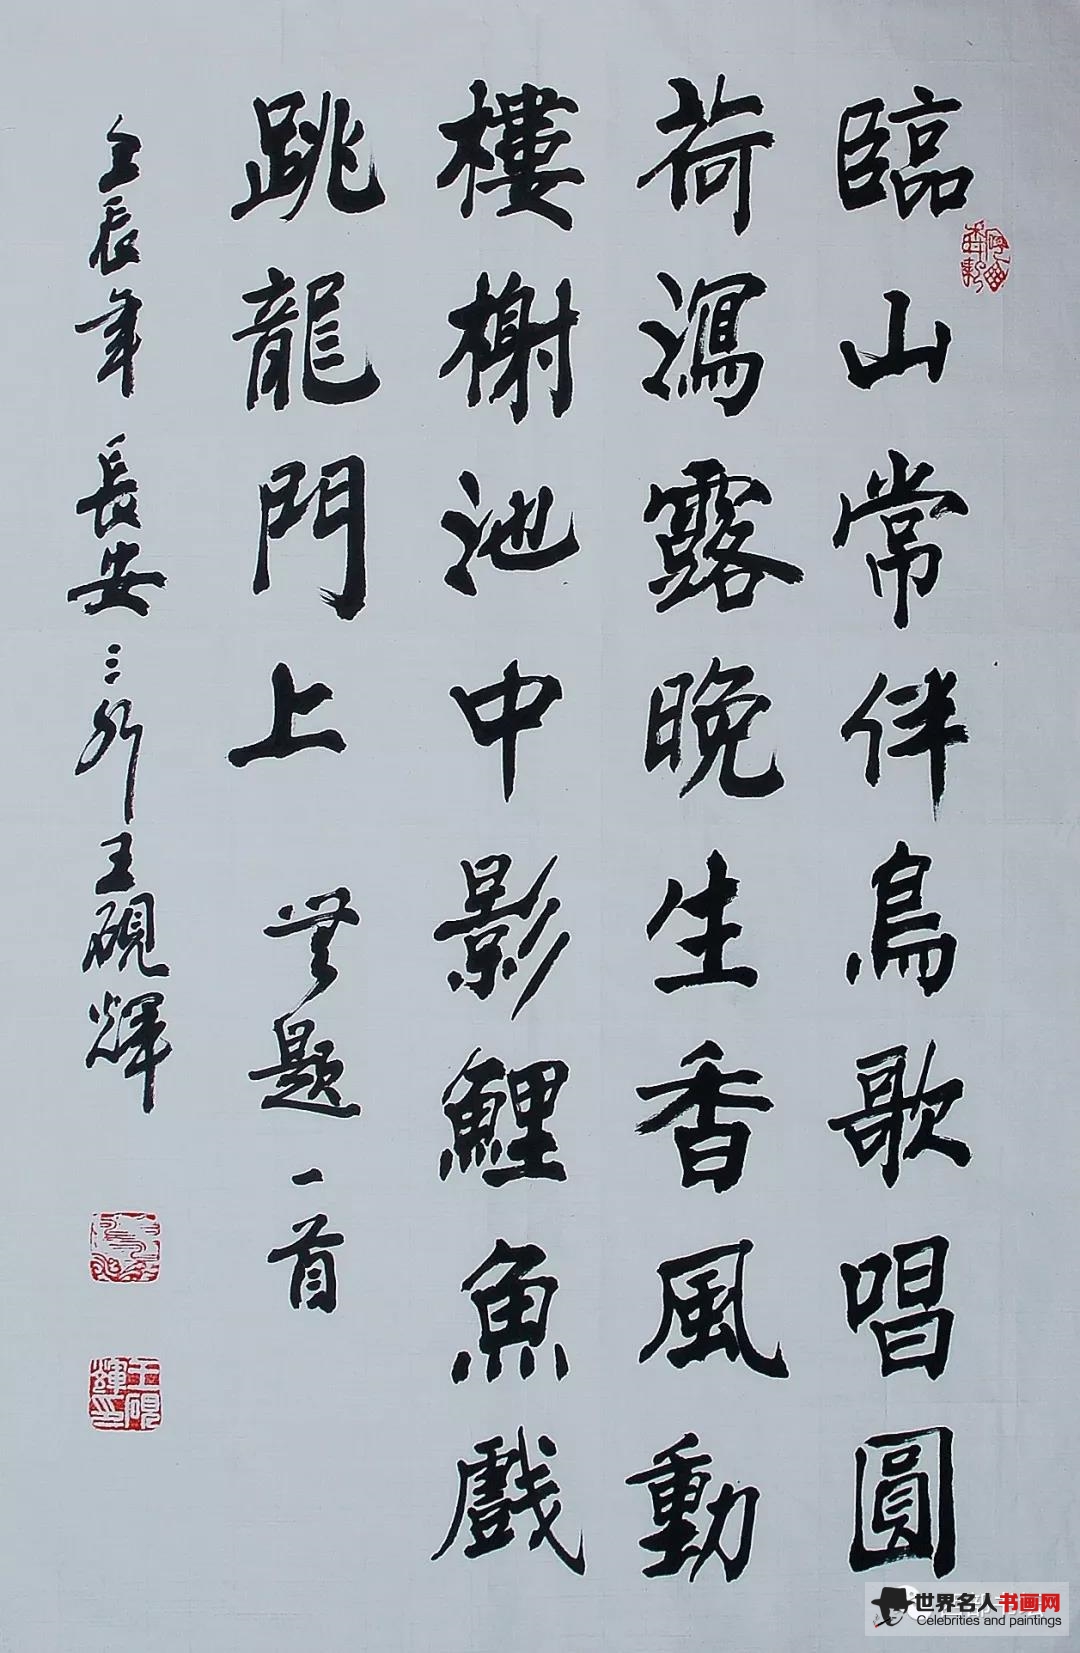 臨山常伴鳥歌唱圓
荷瀉露晚生香風動
樓榭池中影鯉魚戲
跳龍門上 無題一首
壬辰年 長安 王硯輝
王硯輝印
世界名人书画网
Celebrities and paintings